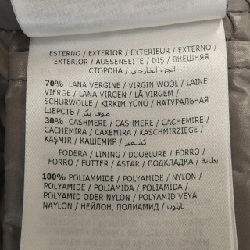 ESTERNO / EXTERIOR / EXTERIEUR / EXTERNO /
EXTERIOR / AUSSENSEITE / DIŞ / ВНЕШНЯЯ
СТОРОНА /
70% LANA VERGINE / VIRGIN WOOL / LAINE
VIERGE / LANA VIRGEN / LÃ VIRGEM /
SCHURWOLLE / KIRKIM YÜNÜ / НАТУРАЛЬНАЯ
ШЕРСТЬ /
30% CASHMERE / CASHMERE / CACHEMIRE /
CACHEMIRA / CAXEMIRA / KASCHMIRZIEGE /
KAŞMİR / КАШЕМИР / كشمير
FODERA / LINING / DOUBLURE / FORRO /
FORRO / FUTTER / ASTAR / ПОДКЛАДКА / بطانة
100% POLIAMMIDE / POLYAMIDE / NYLON /
POLYAMIDE / POLIAMIDA / POLIAMIDA /
POLYAMID ODER NYLON / POLYAMID VEYA
NAYLON / НЕЙЛОН, ПОЛИАМИД / نايلون